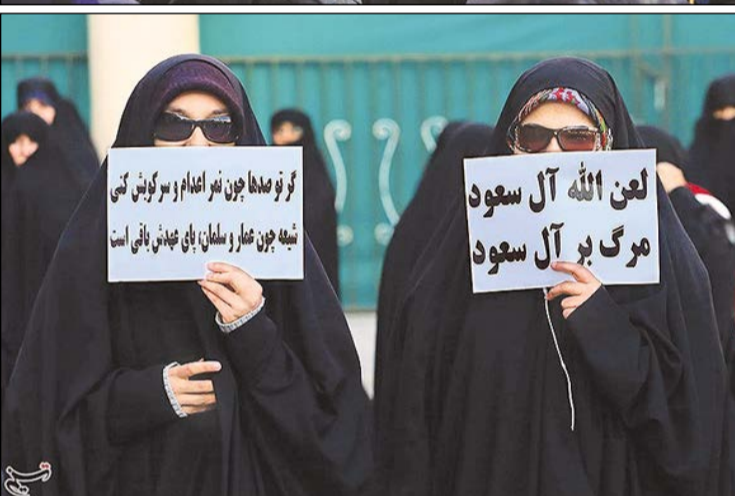 گر تو صدها چون نمر اعدام و سرکوبش کنی
شیعه چون عمار و سلمان، پای عهدش باقی است
لعن الله آل سعود
مرگ بر آل سعود
تسنیم